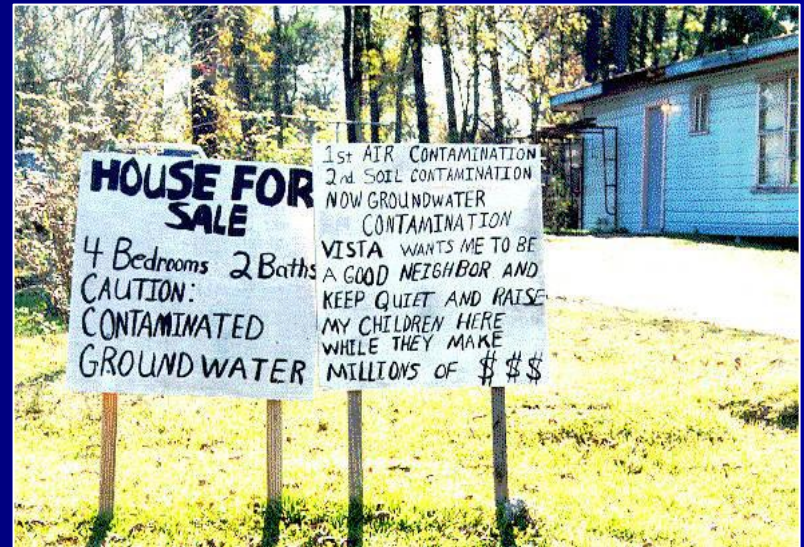 HOUSE FOR
SALE
4 Bedrooms 2 Baths
CAUTION:
CONTAMINATED
GROUNDWATER
1st AIR CONTAMINATION
2nd SOIL CONTAMINATION
NOW GROUNDWATER
CONTAMINATION
VISTA WANTS ME TO BE
A GOOD NEIGHBOR AND
KEEP QUIET AND RAISE
MY CHILDREN HERE
WHILE THEY MAKE
MILLIONS OF $ $$